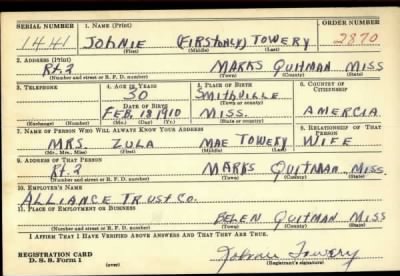 SERIAL NUMBER 1. NAME (Print) ORDER NUMBER
1441 JOHNIE (FIRST ONLY) TOWERY 2870
(First) (Middle) (Last)
2. ADDRESS (Print)
Rt. 2 MARKS QUITMAN MISS
(Number and street or R. F. D. number) (Town) (County) (State)
3. TELEPHONE 4. AGE IN YEARS 5. PLACE OF BIRTH 6. COUNTRY OF CITIZENSHIP
30 SMITHVILLE
DATE OF BIRTH (Town or county)
FEB. 18 1910 MISS. AMERCIA
(Exchange) (Number) (Mo.) (Day) (Yr.) (State or country)
7. NAME OF PERSON WHO WILL ALWAYS KNOW YOUR ADDRESS 8. RELATIONSHIP OF THAT PERSON
MRS. ZULA MAE TOWERY WIFE
(Mr., Mrs., Miss) (First) (Middle) (Last)
9. ADDRESS OF THAT PERSON
Rt. 2 MARKS QUITMAN MISS.
(Number and street or R. F. D. number) (Town) (County) (State)
10. EMPLOYER'S NAME
ALLIANCE TRUST CO.
11. PLACE OF EMPLOYMENT OR BUSINESS
BELEN QUITMAN MISS
(Number and street or R. F. D. number) (Town) (County) (State)
I AFFIRM THAT I HAVE VERIFIED ABOVE ANSWERS AND THAT THEY ARE TRUE.
REGISTRATION CARD Johnie Towery
D. S. S. Form 1 (over) (Registrant's signature)